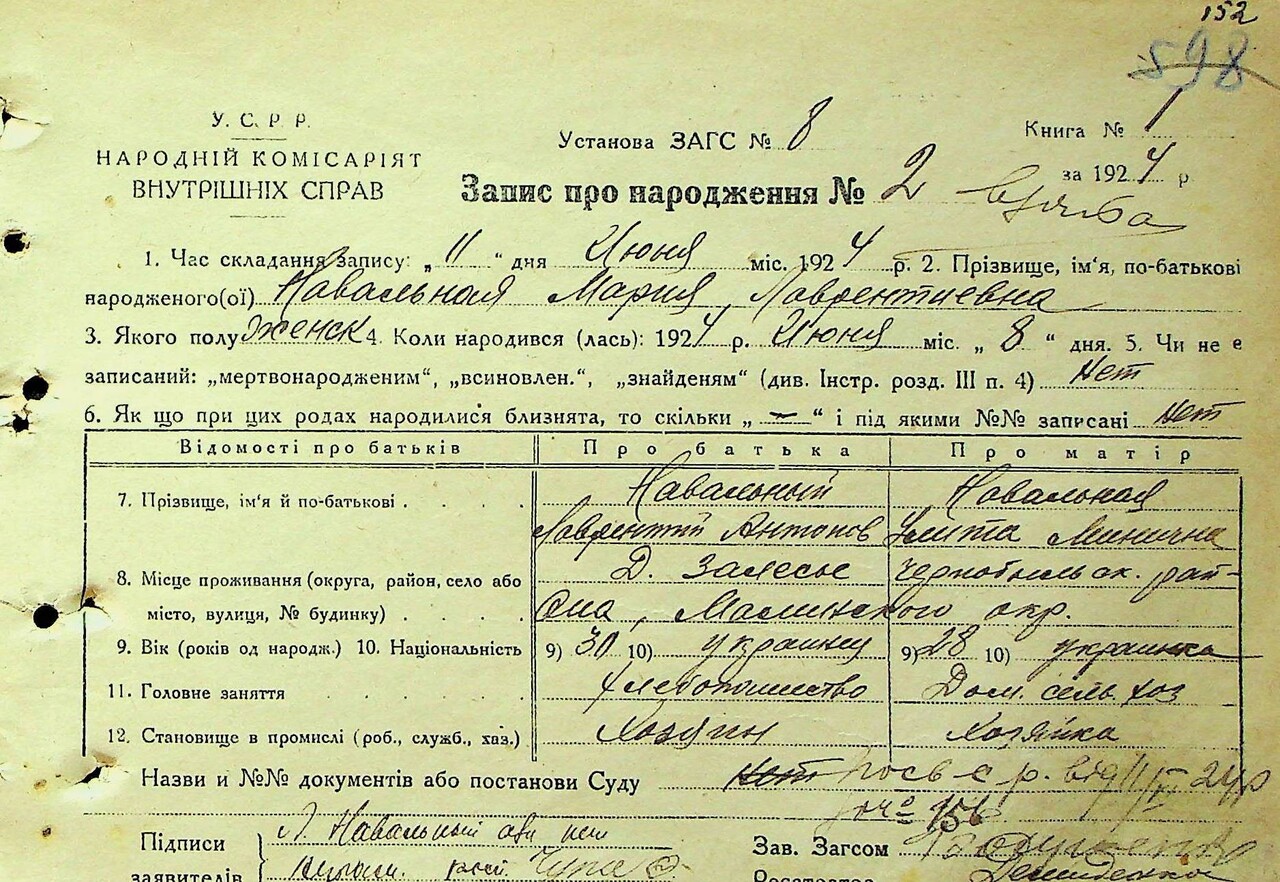 152
598
У. С. Р. Р.
НАРОДНІЙ КОМІСАРІЯТ
ВНУТРІШНІХ СПРАВ
Установа ЗАГС № 8
Книга № 1
за 1924 р.
Запис про народження № 2
1. Час складання запису: „11“ дня Июня міс. 1924 р. 2. Прізвище, ім'я, по-батькові
народженого(ої) Навальная Мария Лаврентиевна
3. Якого полу женск 4. Коли народився (лась): 1924 р. Июня міс. „8“ дня. 5. Чи не є
записаний: „мертвонародженим“, „всиновлен.“, „знайденям“ (див. Інстр. розд. III п. 4) Нет
6. Як що при цих родах народилися близнята, то скільки „—“ і під якими №№ записані нет
Відомості про батьків Про батька Про матір
7. Прізвище, ім'я й по-батькові . . . . Навальный Навальная
Лаврентий Антонов Улита Минична
8. Місце проживання (округа, район, село або Д. Залесье Чернобыльск. рай-
місто, вулиця, № будинку) . . . . она, Малинского окр.
9. Вік (років од народж.) 10. Національність 9) 30 10) украинец 9) 28 10) украинка
11. Головне заняття . . . . . Хлебопашество Дом. сель. хоз
12. Становище в промислі (роб., служб., хаз.) Хозяин Хозяйка
Назви и №№ документів або постанови Суду нет від
№ 156
Підписи Л. Навальный
заявителів
Зав. Загсом
Реєстратор